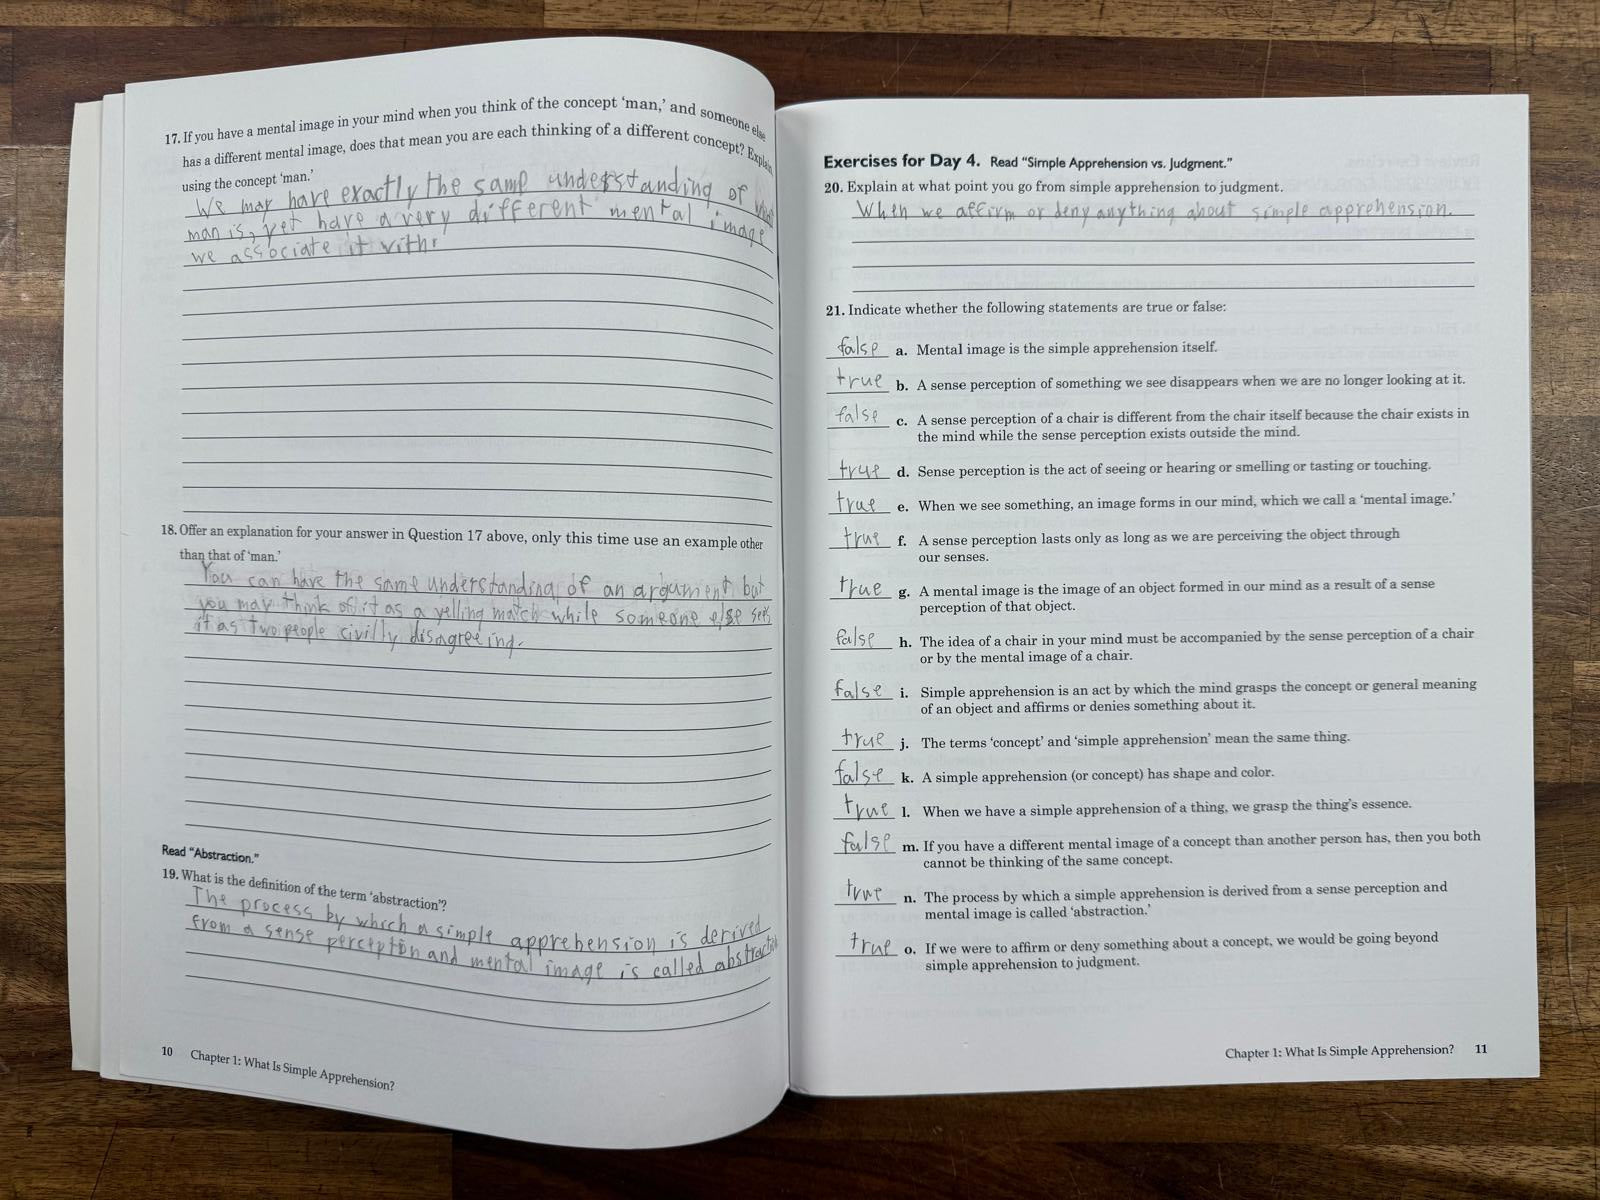 17. If you have a mental image in your mind when you think of the concept ‘man,’ and someone else
has a different mental image, does that mean you are each thinking of a different concept? Explain
using the concept ‘man.’
We may have exactly the same understanding of what
man is, yet have a very different mental image
we associate it with.
18. Offer an explanation for your answer in Question 17 above, only this time use an example other
than that of ‘man.’
You can have the same understanding of an argument but
you may think of it as a yelling match while someone else sees
it as two people civilly disagreeing.
Read “Abstraction.”
19. What is the definition of the term ‘abstraction’?
The process by which a simple apprehension is derived
from a sense perception and mental image is called abstraction
10 Chapter 1: What Is Simple Apprehension?
Exercises for Day 4. Read “Simple Apprehension vs. Judgment.”
20. Explain at what point you go from simple apprehension to judgment.
When we affirm or deny anything about simple apprehension.
21. Indicate whether the following statements are true or false:
false a. Mental image is the simple apprehension itself.
true b. A sense perception of something we see disappears when we are no longer looking at it.
false c. A sense perception of a chair is different from the chair itself because the chair exists in
the mind while the sense perception exists outside the mind.
true d. Sense perception is the act of seeing or hearing or smelling or tasting or touching.
true e. When we see something, an image forms in our mind, which we call a ‘mental image.’
true f. A sense perception lasts only as long as we are perceiving the object through
our senses.
true g. A mental image is the image of an object formed in our mind as a result of a sense
perception of that object.
false h. The idea of a chair in your mind must be accompanied by the sense perception of a chair
or by the mental image of a chair.
false i. Simple apprehension is an act by which the mind grasps the concept or general meaning
of an object and affirms or denies something about it.
true j. The terms ‘concept’ and ‘simple apprehension’ mean the same thing.
false k. A simple apprehension (or concept) has shape and color.
true l. When we have a simple apprehension of a thing, we grasp the thing’s essence.
false m. If you have a different mental image of a concept than another person has, then you both
cannot be thinking of the same concept.
true n. The process by which a simple apprehension is derived from a sense perception and
mental image is called ‘abstraction.’
true o. If we were to affirm or deny something about a concept, we would be going beyond
simple apprehension to judgment.
Chapter 1: What Is Simple Apprehension? 11